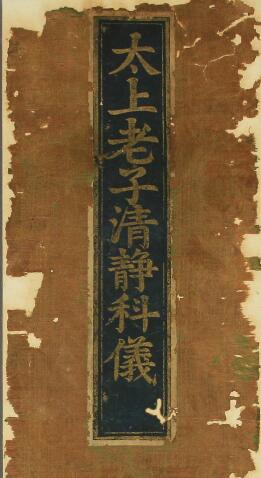 太上老子清靜科儀